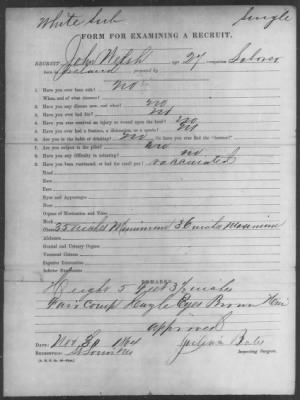 White Sub Single
FORM FOR EXAMINING A RECRUIT.
RECRUIT: John Welsh age 27 occupation Laborer
born Ireland presented by
1. Have you ever been sick? no
When, and of what disease?
2. Have you any disease now, and what? no
3. Have you ever had fits? no
4. Have you ever received an injury or wound upon the head? no
5. Have you ever had a fracture, a dislocation, or a sprain? no
6. Are you in the habit of drinking? no Or have you ever had the "horrors?"
7. Are you subject to the piles? no
8. Have you any difficulty in urinating? no
9. Have you been vaccinated, or had the small pox? vaccinated
Head
Face
Eyes and Appendages
Nose
Organs of Mastication and Voice
Neck
Chest 35 inches Minimum 36 inches Maximum
Abdomen
Genital and Urinary Organs
Vertebral Column
Superior Extremities
Inferior Extremities
REMARKS.
Height 5 feet 3½ inches
Fair Comp Hazle Eyes Brown Hair
approved
DATE: Nov 30 1864
RENDEZVOUS: Inspecting Surgeon.